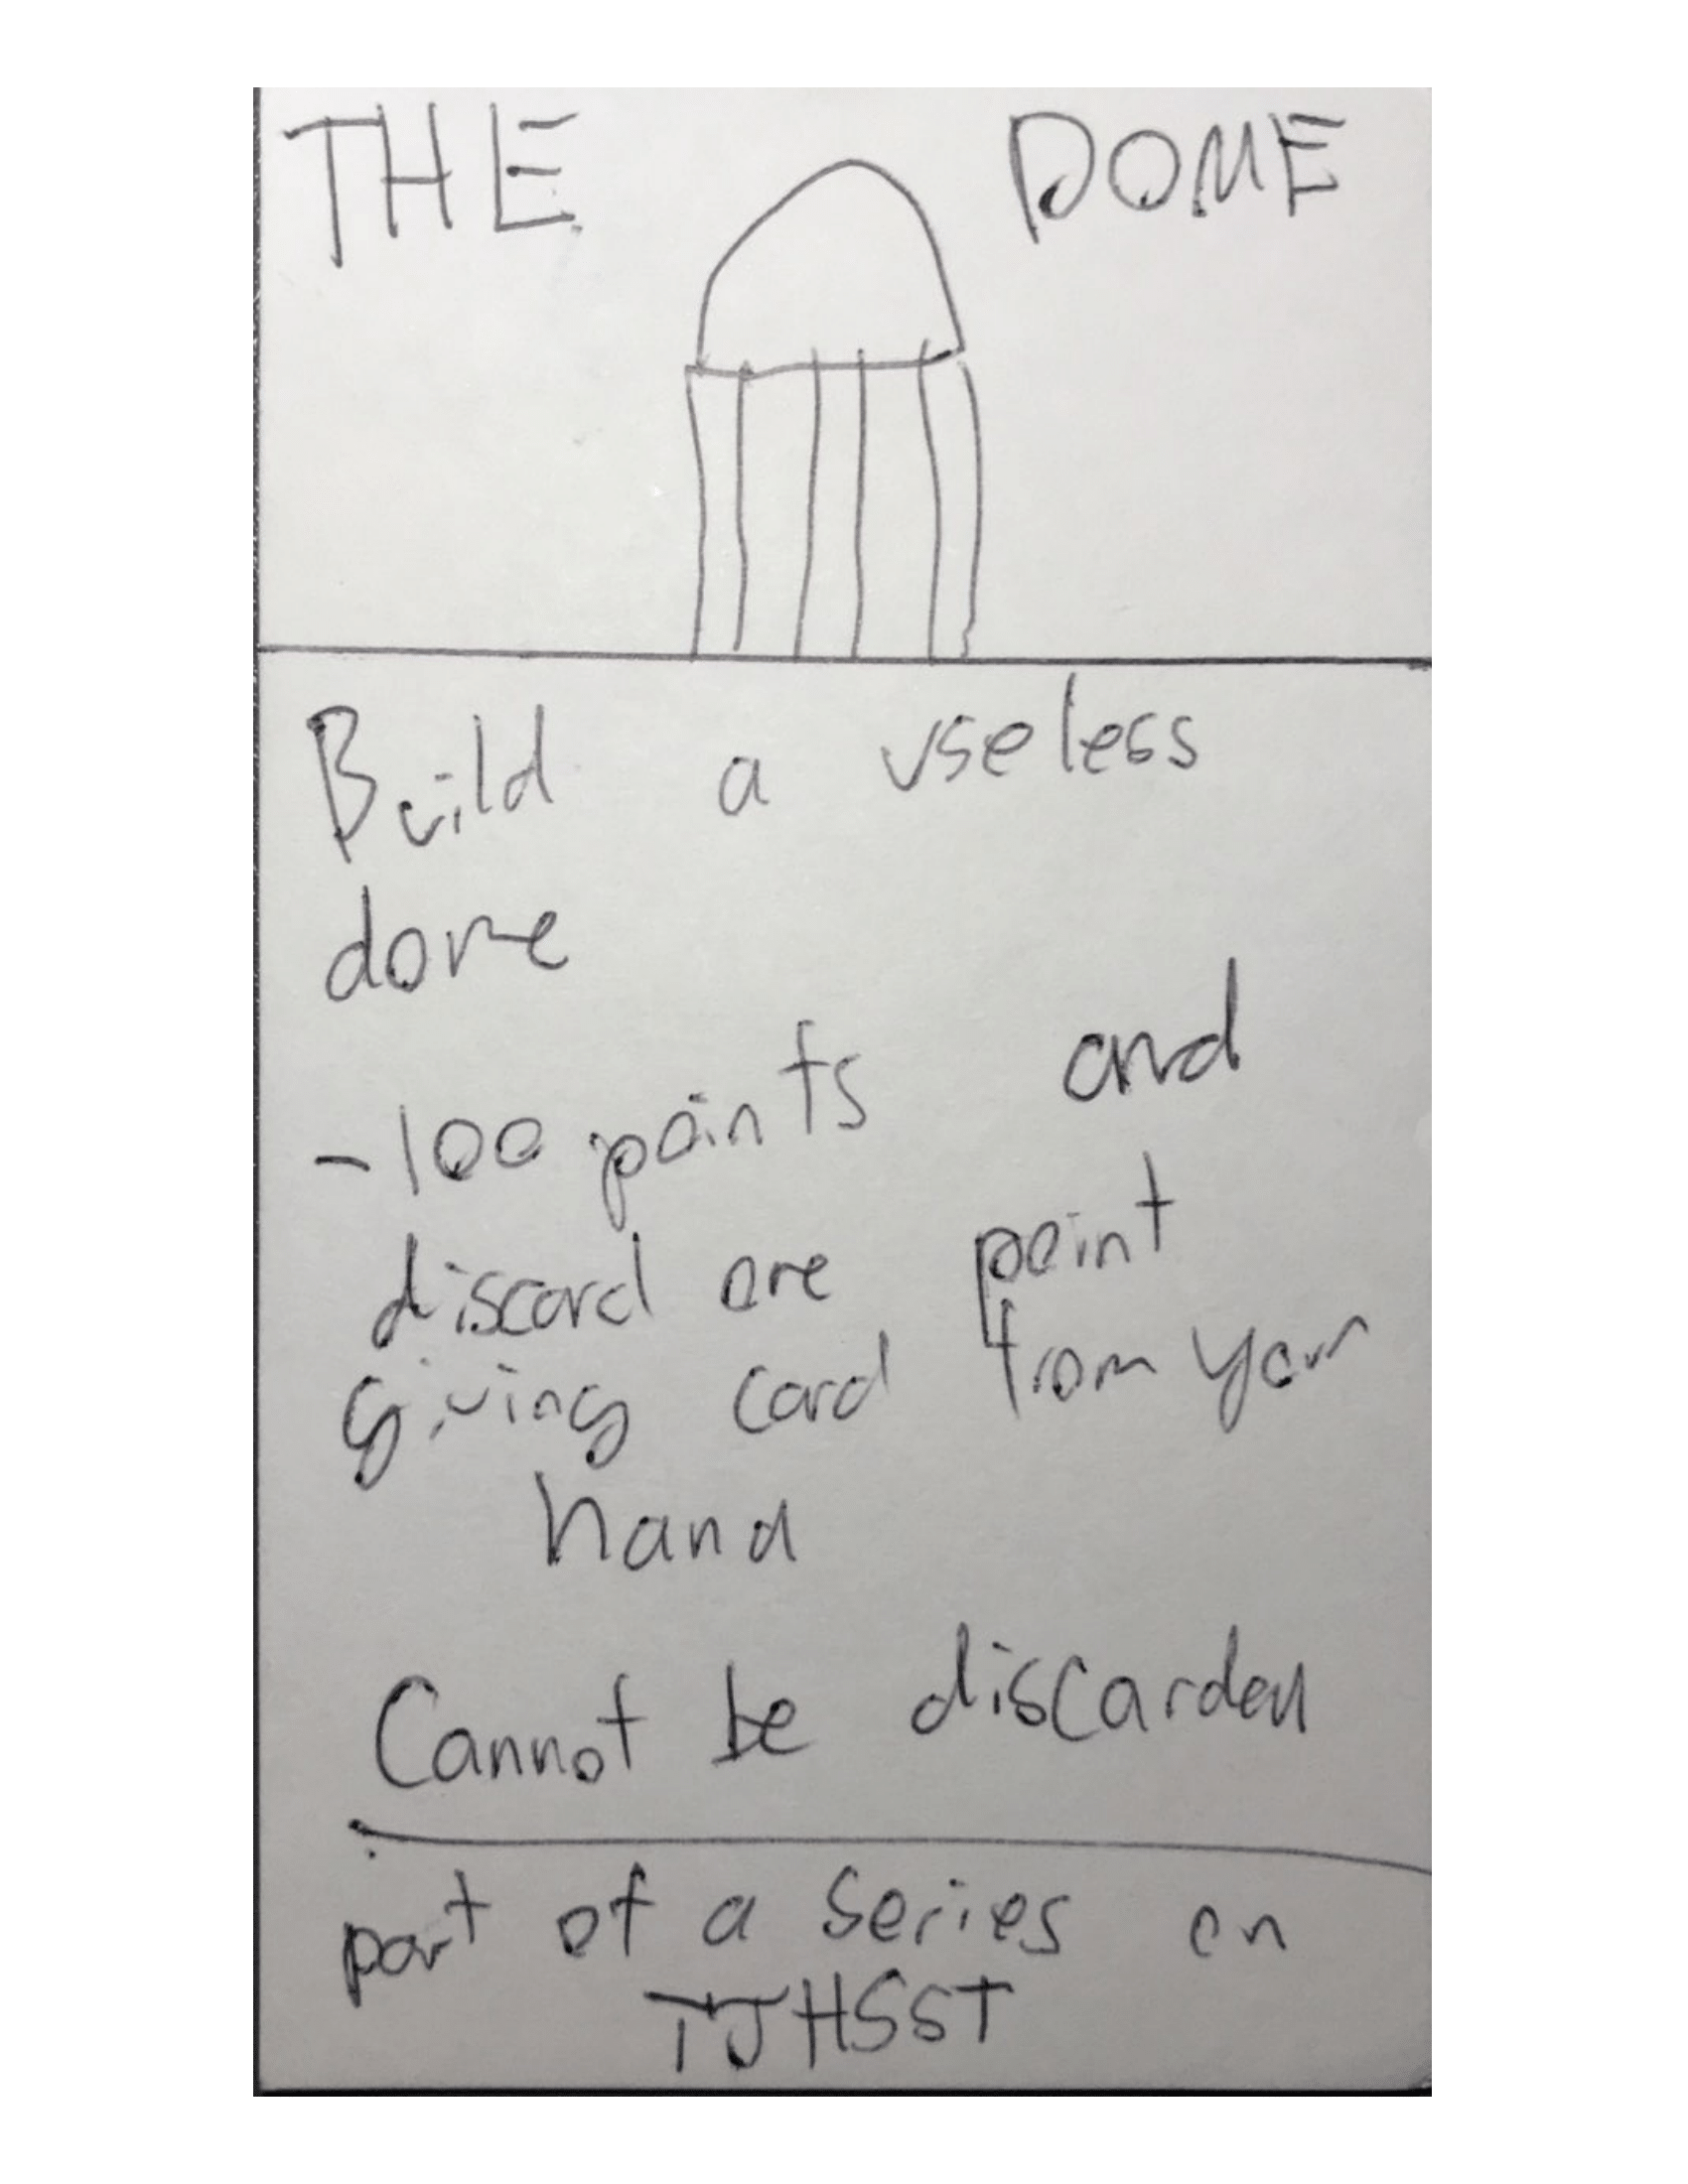 THE DOME
Build a useless
dome
-100 points and
discard one point
giving card from your
hand
Cannot be discarded
part of a series on
TJHSST